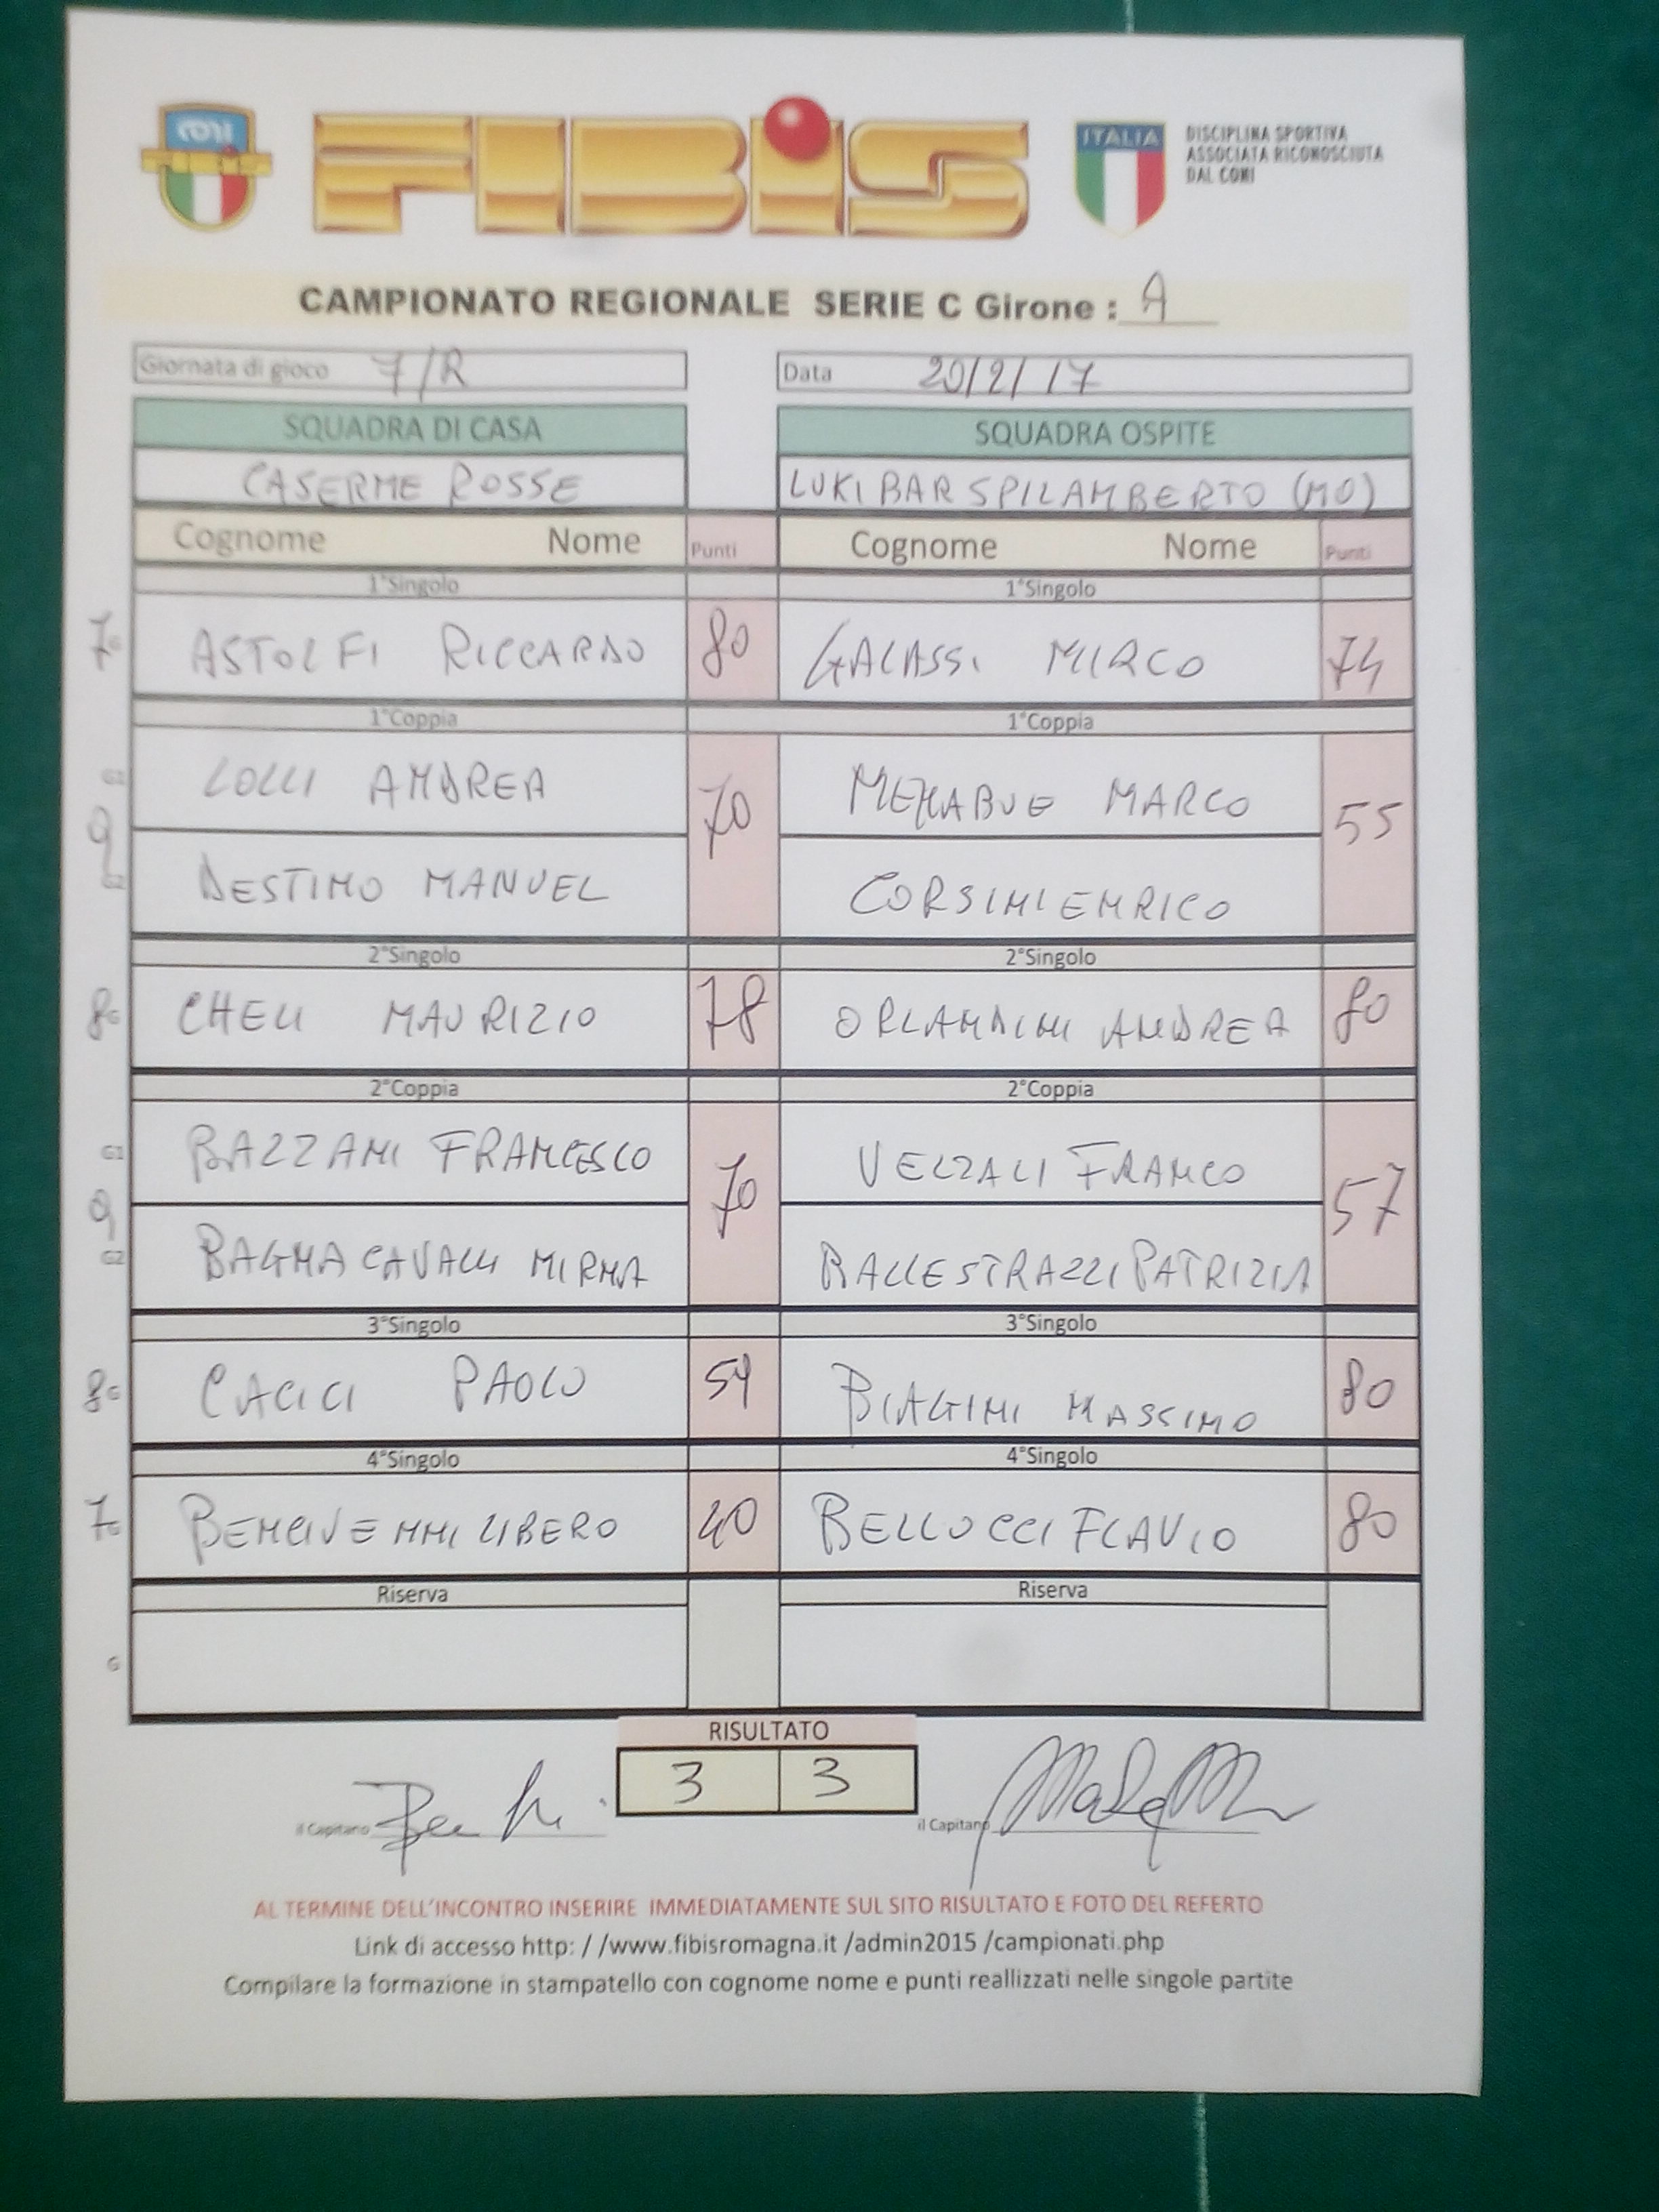 CONI
FIBIS
ITALIA
DISCIPLINA SPORTIVA
ASSOCIATA RICONOSCIUTA
DAL CONI
CAMPIONATO REGIONALE SERIE C Girone : A
Giornata di gioco 7/R Data 20/2/17
SQUADRA DI CASA SQUADRA OSPITE
CASERME ROSSE LUKI BAR SPILAMBERTO (MO)
Cognome Nome Punti Cognome Nome Punti
1°Singolo 1°Singolo
7 G ASTOLFI RICCARDO 80 GALASSI MIRCO 74
1°Coppia 1°Coppia
G1 LOLLI ANDREA 70 MENABUE MARCO 55
9
G2 DESTINO MANUEL CORSINI ENRICO
2°Singolo 2°Singolo
8 G CHELI MAURIZIO 78 ORLANDINI ANDREA 80
2°Coppia 2°Coppia
G1 BAZZANI FRANCESCO 70 VELZALI FRANCO 57
9
G2 BAGNACAVALLI MIRNA BALLESTRAZZI PATRIZIA
3°Singolo 3°Singolo
8 G CACICI PAOLO 54 BIAGINI MASSIMO 80
4°Singolo 4°Singolo
7 G BENCIVENNI LIBERO 40 BELLUCCI FLAVIO 80
Riserva Riserva
G
RISULTATO
3 3
il Capitano il Capitano
AL TERMINE DELL'INCONTRO INSERIRE IMMEDIATAMENTE SUL SITO RISULTATO E FOTO DEL REFERTO
Link di accesso http: / /www.fibisromagna.it /admin2015 /campionati.php
Compilare la formazione in stampatello con cognome nome e punti reallizzati nelle singole partite